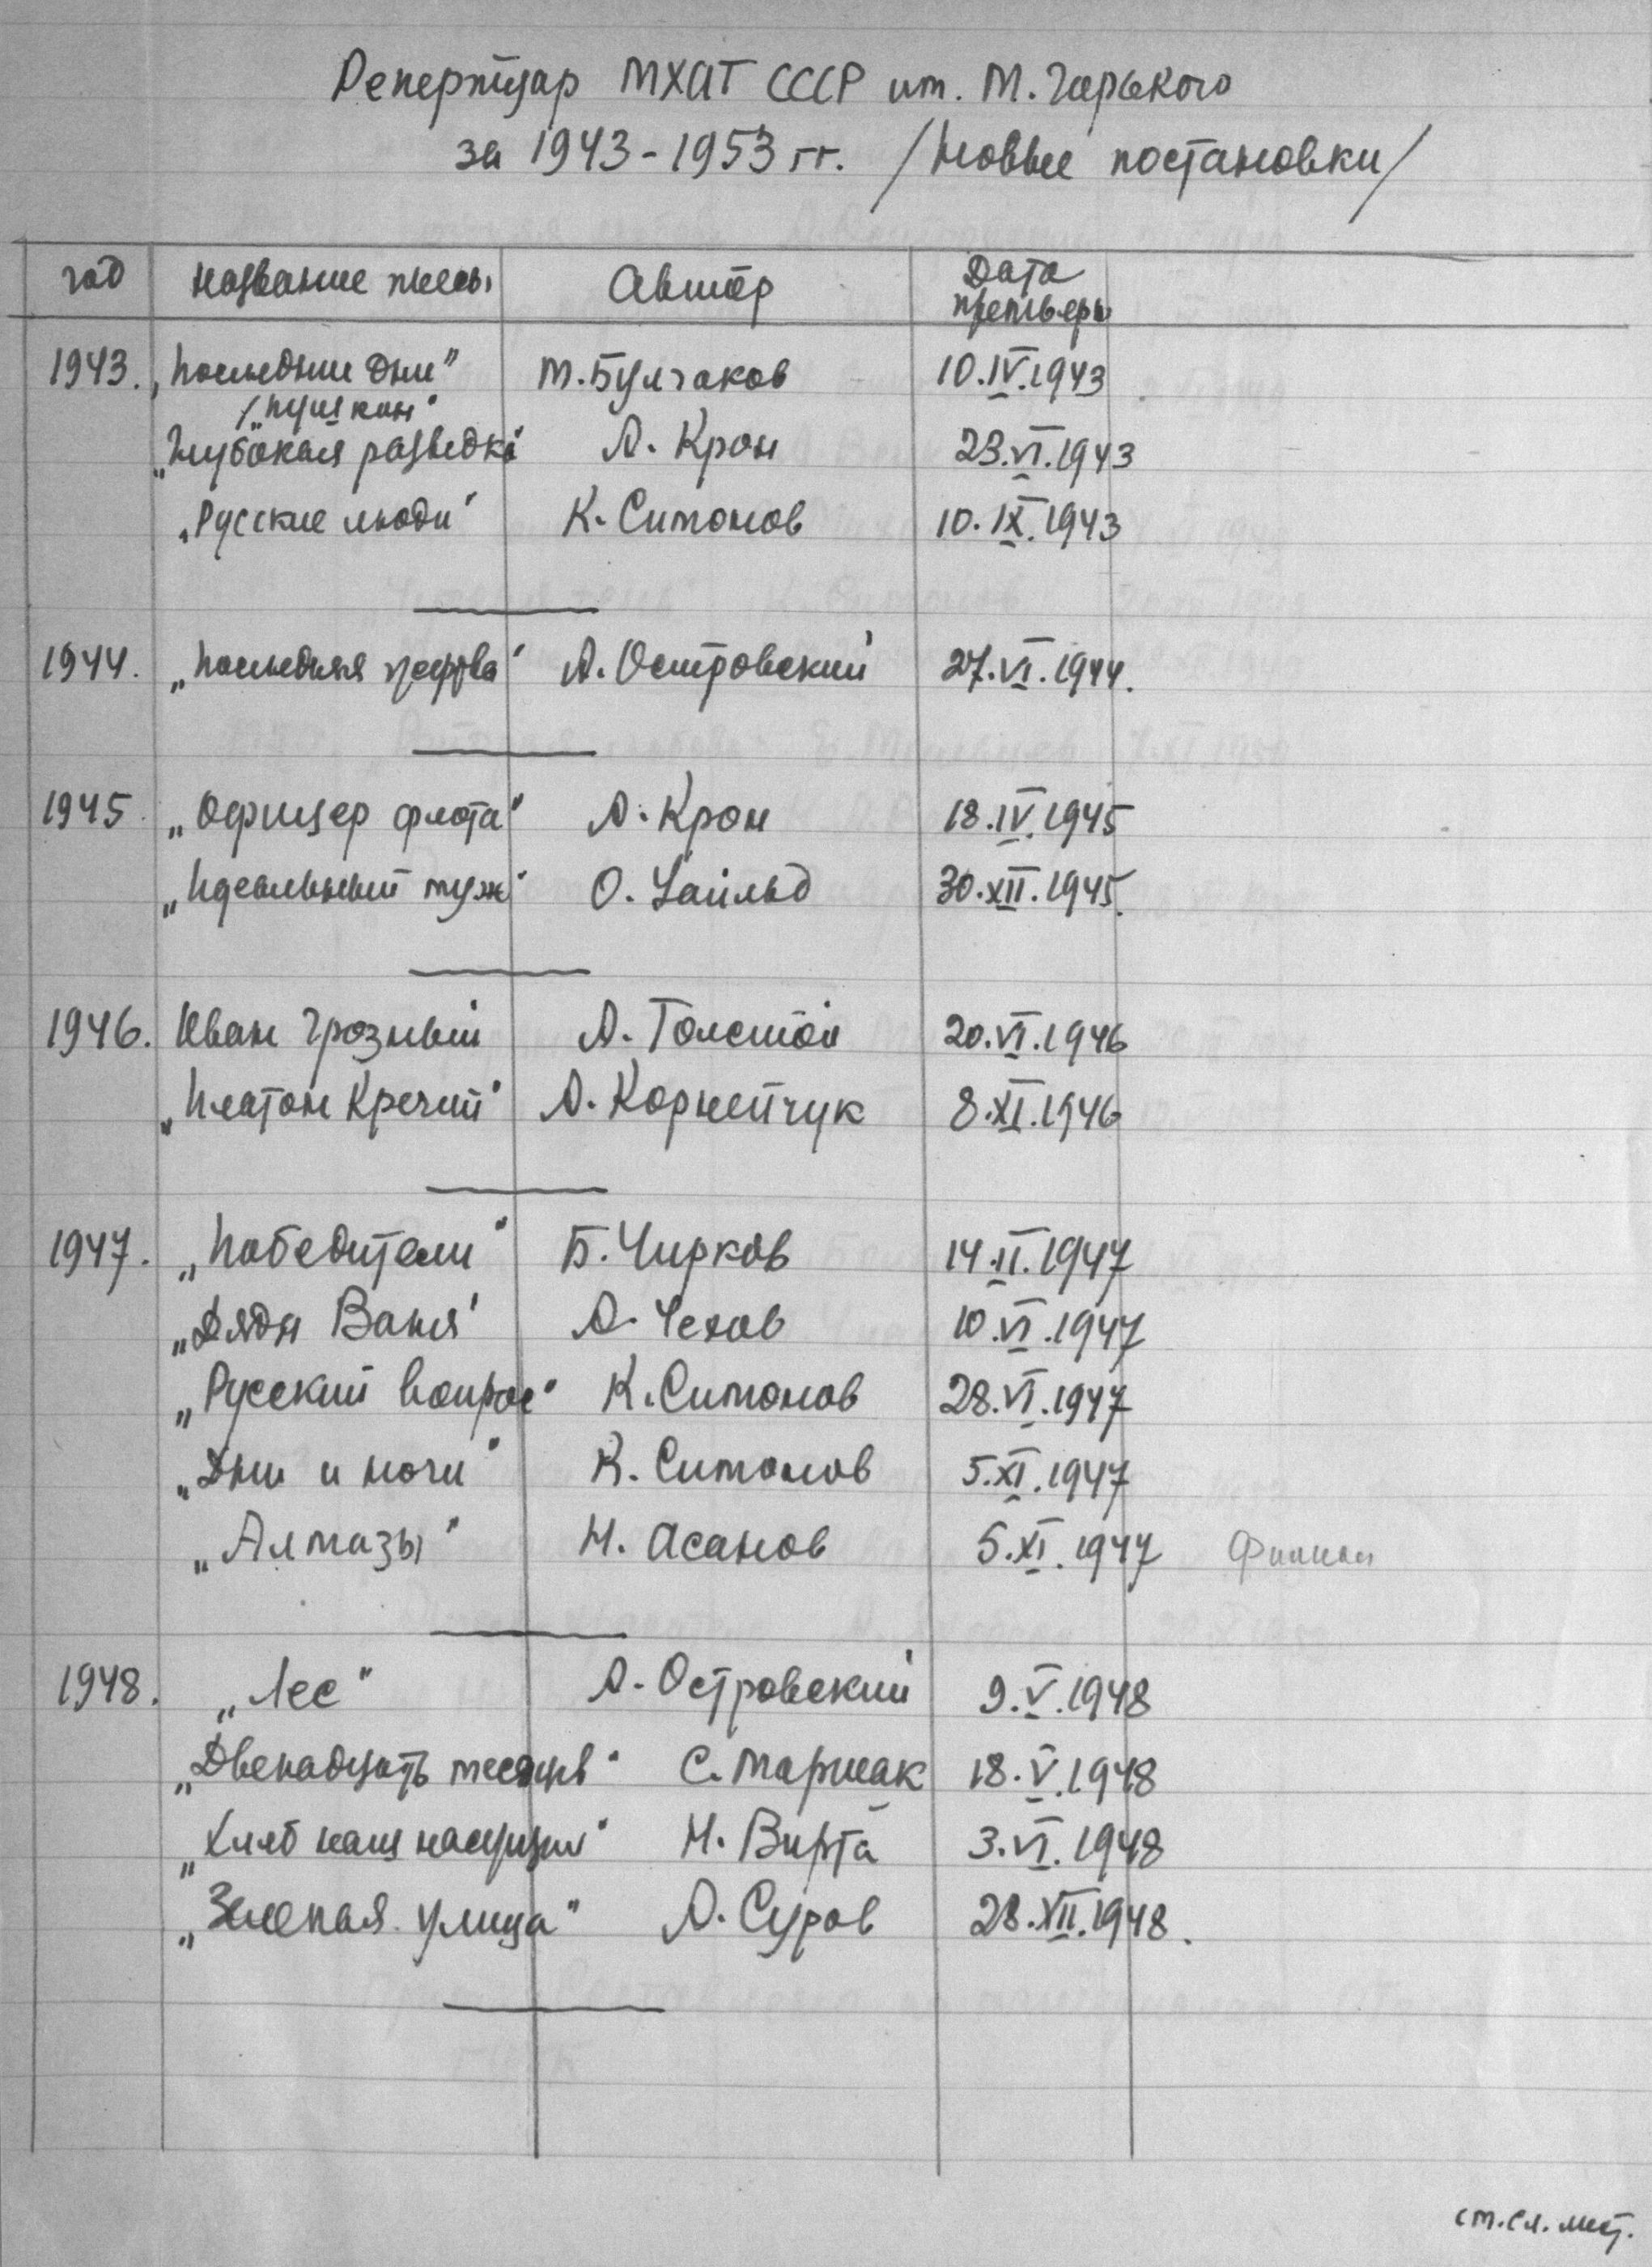 Репертуар МХАТ СССР им. М. Горького
за 1943-1953 гг. /Новые постановки/
год Название пьесы Автор Дата премьеры
1943. „Последние дни" М. Булгаков 10.IV.1943
/„Пушкин"
„Глубокая разведка" А. Крон 23.VI.1943
„Русские люди" К. Симонов 10.IX.1943
1944. „Последняя жертва" А. Островский 27.VI.1944.
1945. „Офицер флота" А. Крон 18.IV.1945
„Идеальный муж" О. Уайльд 30.XII.1945.
1946. Иван Грозный А. Толстой 20.VI.1946
„Платон Кречет" А. Корнейчук 8.XI.1946
1947. „Победители" Б. Чирков 14.II.1947
„Дядя Ваня" А. Чехов 10.VI.1947
„Русский вопрос" К. Симонов 28.VI.1947
„Дни и ночи" К. Симонов 5.XI.1947
„Алмазы" Н. Асанов 5.XI.1947 Филиал
1948. „Лес" А. Островский 9.V.1948
„Двенадцать месяцев" С. Маршак 18.V.1948
„Хлеб наш насущный" Н. Вирта 3.VI.1948
„Зеленая улица" А. Суров 28.XII.1948.
см. сл. лист.